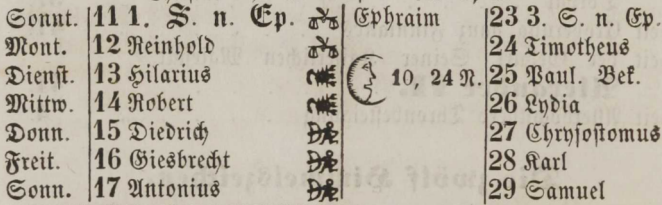 Sonnt. 11 1. S. n. Ep. Ephraim 23 3. S. n. Ep.
Mont. 12 Reinhold 24 Timotheus
Dienst. 13 Hilarius 10, 24 N. 25 Paul. Bek.
Mittw. 14 Robert 26 Lydia
Donn. 15 Diedrich 27 Chrysostomus
Freit. 16 Giesbrecht 28 Karl
Sonn. 17 Antonius 29 Samuel